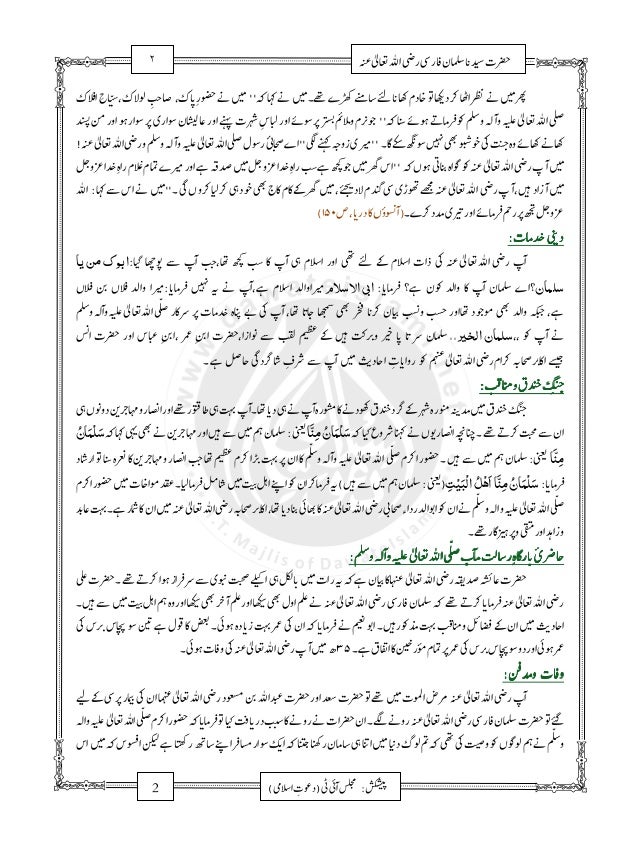 حضرت سیدنا سلمان فارسی رضی اللہ تعالیٰ عنہ
۲
پھر میں نے نظر اٹھا کر دیکھا تو خادم کھانا لئے سامنے کھڑے تھے۔ میں نے کہا کہ'' میں نے حضورِ پاک، صاحبِ لولاک، سیّاحِ افلاک
صلی اللہ تعالیٰ علیہ و آلہ وسلم کو فرماتے ہوئے سنا کہ'' جو نرم وملائم بستر پر سوئے اور لباسِ شہرت پہنے اور عالیشان سواری پر سوار ہو اور من پسند
کھانے کھائے وہ جنت کی خوشبو بھی نہیں سونگھ سکے گا۔ ''میری زوجہ کہنے لگی''اے صحابیٔ رسول صلی اللہ تعالیٰ علیہ وآلہ وسلم ورضی اللہ عنہ!
میں آپ رضی اللہ تعالیٰ عنہ کو گواہ بناتی ہوں کہ ''اس گھر میں جو کچھ ہے سب راہِ خدا عزوجل میں صدقہ ہے اور میرے تمام غلام راہِ خدا عزوجل
میں آزاد ہیں، آپ رضی اللہ تعالیٰ عنہ مجھے تھوڑی سی گندم لا دیجئے، میں گھر کے کام کاج بھی خود ہی کر لیا کروں گی۔''میں نے اس سے کہا: اللہ
عزوجل تجھ پر رحم فرمائے اور تیری مدد کرے۔ (آنسوؤں کا دریا، ص۱۵۰)
دینی خدمات:
آپ رضی اللہ تعالیٰ عنہ کی ذات اسلام کے لئے تھی اور اسلام ہی آپ کا سب کچھ تھا، جب آپ سے پوچھا گیا: ابوک من یا
سلمان؟ اے سلمان آپ کا والد کون ہے؟ فرمایا: ابی الاسلام میرا والد اسلام ہے، آپ نے یہ نہیں فرمایا: میرا والد فلاں بن فلاں
ہے، جبکہ والد بھی موجود تھا اور حسب ونسب بیان کرنا فخر بھی سمجھا جاتا تھا، آپ کی بے پناہ خدمات پر سرکار صلی اللہ تعالیٰ علیہ والہ وسلم
نے آپ کو ،،سلمان الخیر،، سلمان سر تا پا خیر وبرکت ہیں کے عظیم لقب سے نوازا، حضرت ابن عمر، ابن عباس اور حضرت انس
جیسے اکابر صحابہ کرام رضی اللہ تعالیٰ عنہم کو روایاتِ احادیث میں آپ سے شرفِ شاگردگی حاصل ہے۔
جنگِ خندق ومناقب:
جنگ خندق میں مدینہ منورہ شہر کے گرد خندق کھودنے کا مشورہ آپ نے ہی دیا تھا۔ آپ بہت ہی طاقتور تھے اور انصار و مہاجرین دونوں ہی
ان سے محبت کرتے تھے۔ چنانچہ انصاریوں نے کہنا شروع کیا کہ سَلْمَانُ مِنَّا یعنی: سلمان ہم میں سے ہیں اور مہاجرین نے بھی یہی کہا کہ سَلْمَانُ
مِنَّا یعنی: سلمان ہم میں سے ہیں۔ حضورِ اکرم صلّی اللہ تعالیٰ علیہ والہ وسلّم کا ان پر بہت بڑا کرم عظیم تھا جب انصار و مہاجرین کا نعرہ سنا تو ارشاد
فرمایا: سَلْمَانُ مِنَّا اَھْلَ الْبَیْتِ (یعنی: سلمان ہم میں سے ہیں) یہ فرما کر ان کو اپنے اہل بیت میں شامل فرمالیا۔ عقد مواخات میں حضور اکرم
صلّی اللہ تعالیٰ علیہ والہ وسلّم نے ان کو ابوالدرداء صحابی رضی اللہ تعالیٰ عنہ کا بھائی بنا دیا تھا، اکابر صحابہ رضی اللہ تعالیٰ عنہ میں ان کا شمار ہے۔ بہت عابد
وزاہد اور متقی وپرہیزگار تھے۔
حاضریٔ بارگاہِ رسالت مآب صلّی اللہ تعالیٰ علیہ واٰلہ وسلّم:
حضرت عائشہ صدیقہ رضی اللہ تعالیٰ عنہا کا بیان ہے کہ یہ رات میں بالکل ہی اکیلے صحبت نبوی سے سرفراز ہوا کرتے تھے۔ حضرت علی
رضی اللہ تعالیٰ عنہ فرمایا کرتے تھے کہ سلمان فارسی رضی اللہ تعالیٰ عنہ نے علم اول بھی سیکھا اور علم آخر بھی سیکھا اور وہ ہم اہل بیت میں سے ہیں۔
احادیث میں ان کے فضائل و مناقب بہت مذکور ہیں۔ ابو نعیم نے فرمایا کہ ان کی عمر بہت زیادہ ہوئی۔ بعض کا قول ہے تین سو پچاس برس کی
عمر ہوئی اور دو سو پچاس برس کی عمر پر تمام مؤرخین کا اتفاق ہے۔ ۳۵ھ میں آپ رضی اللہ تعالیٰ عنہ کی وفات ہوئی۔
وفات ومدفن:
آپ رضی اللہ تعالیٰ عنہ مرض الموت میں تھے تو حضرت سعد اور حضرت عبداللہ بن مسعود رضی اللہ تعالیٰ عنہما ان کی بیمار پرسی کے لیے
گئے تو حضرت سلمان فارسی رضی اللہ تعالیٰ عنہ رونے لگے۔ ان حضرات نے رونے کا سبب دریافت کیا تو فرمایا کہ حضور اکرم صلّی اللہ تعالیٰ علیہ والہ
وسلّم نے ہم لوگوں کو وصیت کی تھی کہ تم لوگ دنیا میں اتنا ہی سامان رکھنا جتنا کہ ایک سوار مسافر اپنے ساتھ رکھتا ہے لیکن افسوس کہ میں اس
پیشکش: مجلس آئی ٹی (دعوتِ اسلامی)
2